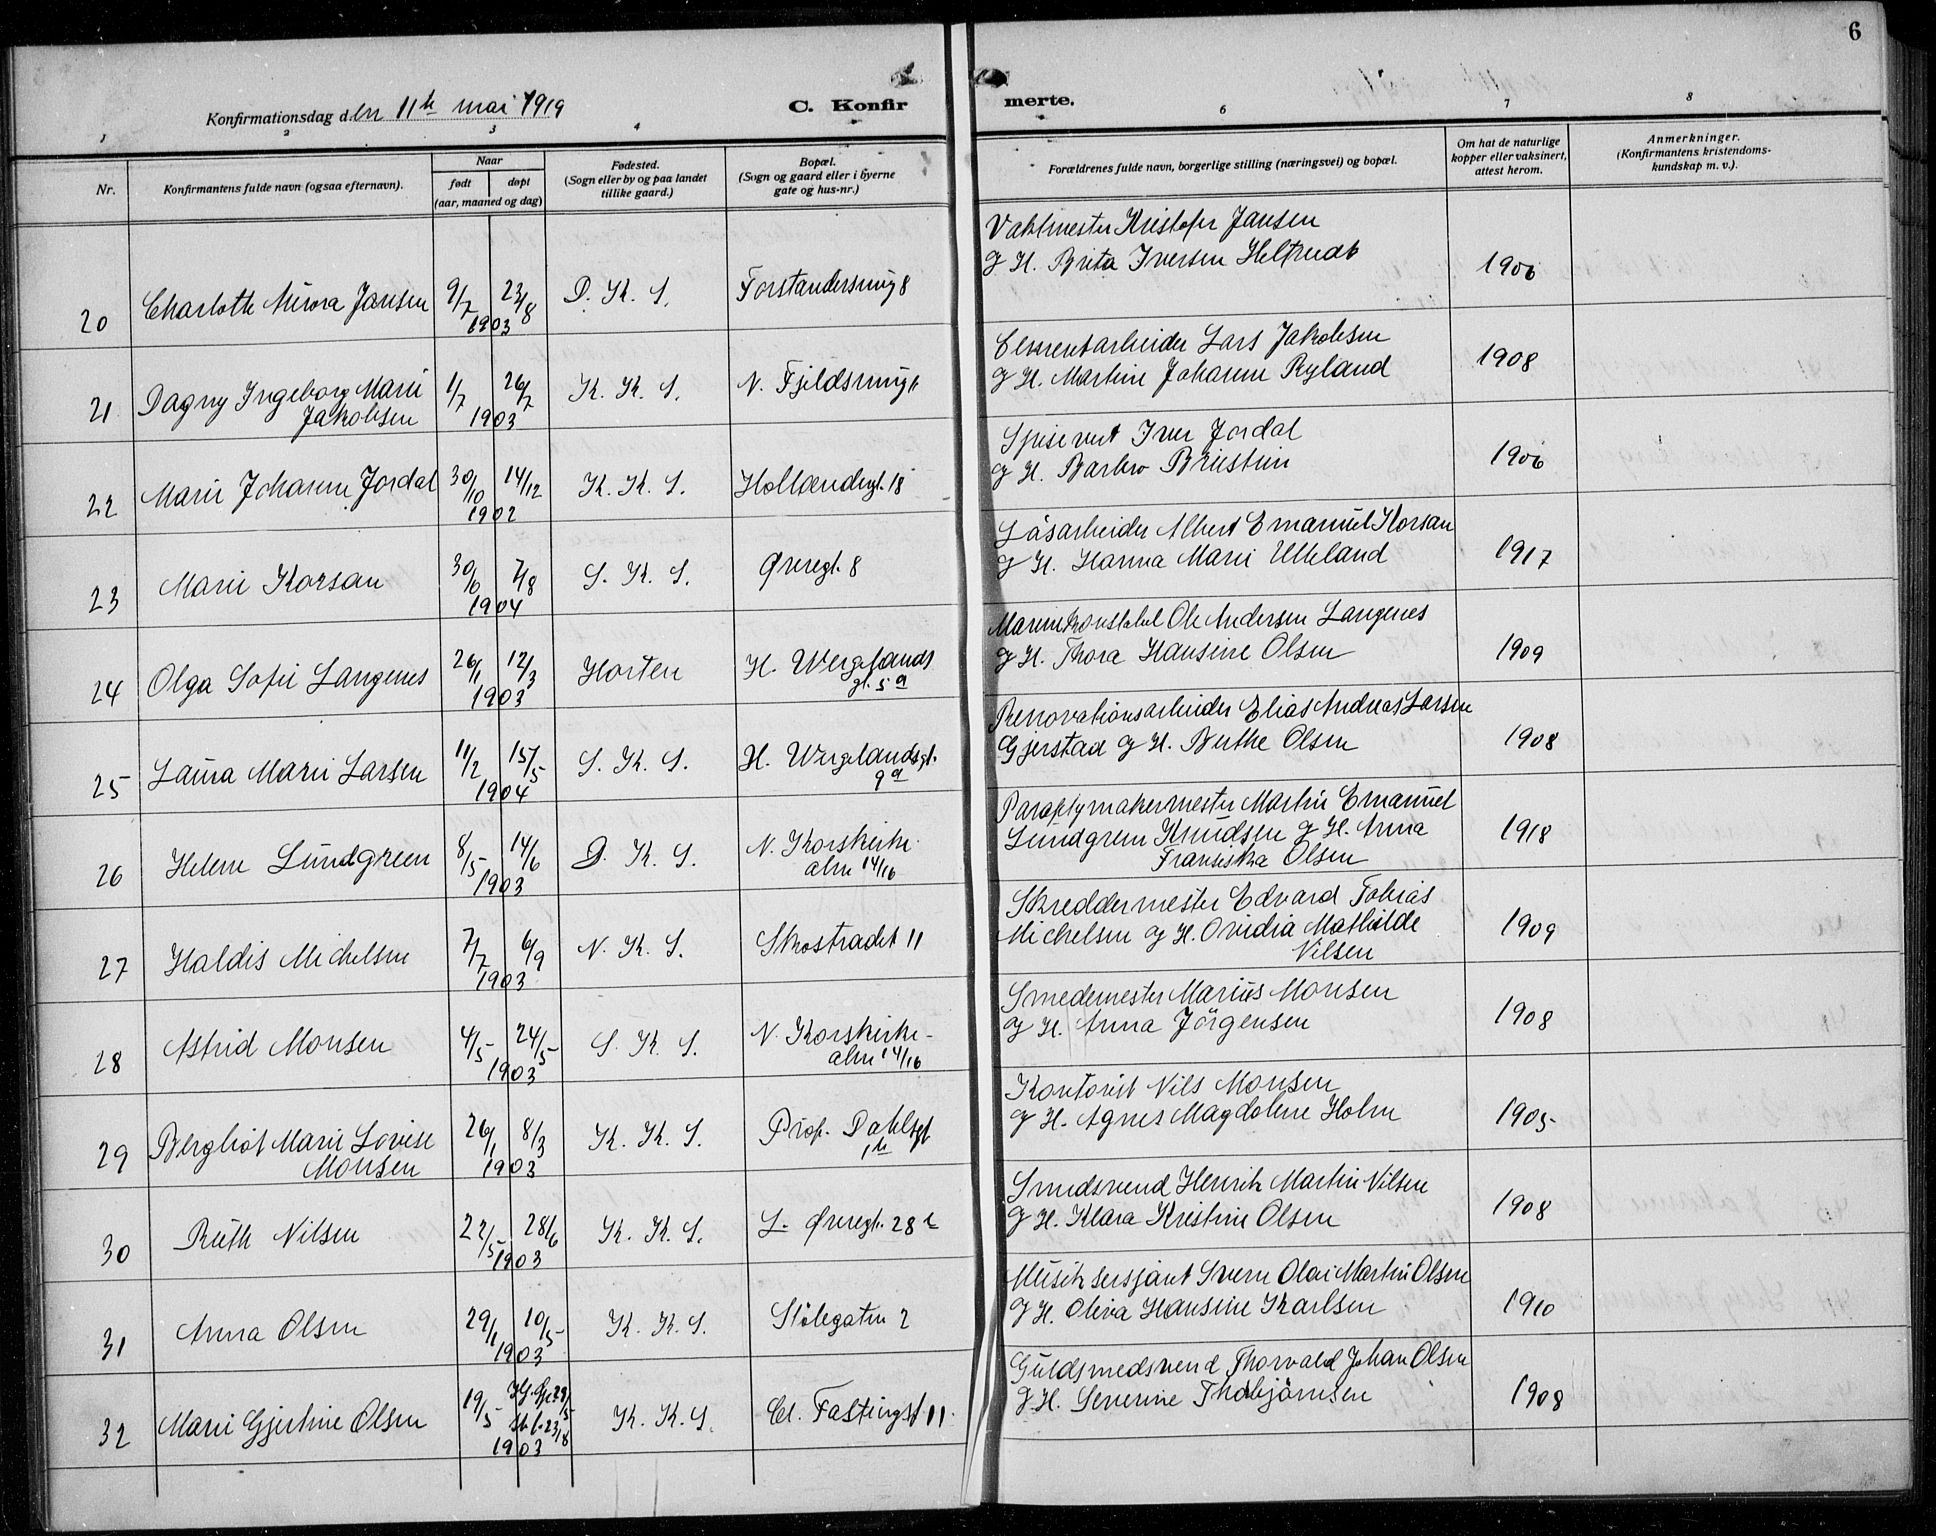 6
Konfirmationsdag den 11te mai 1919
C. Konfirmerte.
1 2 3 4 6 7 8
Nr.
Konfirmantens fulde navn (ogsaa efternavn).
Naar
født døpt
(aar, maaned og dag)
Fødested.
(Sogn eller by og paa landet
tillike gaard.)
Bopæl.
(Sogn og gaard eller i byerne
gate og hus-nr.)
Forældrenes fulde navn, borgerlige stilling (næringsvei) og bopæl.
Om hat de naturlige
kopper eller vaksinert,
attest herom.
Anmerkninger.
(Konfirmantens kristendoms-
kundskap m. v.).
20 Charlotte Minora Jansen 9/7 23/8 1903 D. K. S. Forstandersmug 8
Vaktmester Kristofer Jansen
og H. Brita Iversen 1906
21 Dagny Ingeborg Marie
Jakobsen 1/7 26/7 1903 K. K. S. N. Fjeldsmug
Cementarbeider Lars Jakobsen
og H. Martine Johanne Ryland 1908
22 Marie Johanne Jordal 30/10 14/12 1902 K. K. S. Hollendergt. 18
Spisevert Iver Jordal
og H. Barbro 1906
23 Marie Korsan 30/6 7/8 1904 S. K. S. Øvregt. 8
Låsarbeider Albert Emanuel Korsan
og H. Hanna Marie Utteland 1917
24 Olga Sofie Langenes 26/1 12/3 1903 Horten H. Wergelands
gt. 5a
Marinekonstabel Ole Andersen Langenes
og H. Thora Hansine Olsen 1909
25 Laura Marie Larsen 11/2 15/5 1904 S. K. S. H. Wergelandsgt.
9a
Renovationsarbeider Elias Andreas Larsen
Gjerstad og H. Berthe Olsen 1908
26 Helene Lundgreen 8/5 14/6 1903 D. K. S. N. Korskirke
alm 14/16
Paraplymakermester Martin Emanuel
Lundgreen Knudsen og H. Anna
Fransiska Olsen 1918
27 Haldis Michelsen 7/7 6/9 1903 N. K. S. Skostrædet 11
Skreddermester Edvard Tobias
Michelsen og H. Ovidia Mathilde
Nilsen 1909
28 Astrid Monsen 4/5 24/5 1903 S. K. S. N. Korskirke-
alm 14/16
Smedemester Marius Monsen
og H. Anna Jörgensen 1908
29 Bergliot Marie Lovise
Monsen 26/1 8/3 1903 K. K. S. Prof. Dahlsgt
Kontorist Nils Monsen
og H. Agnes Magdalene Holm 1905
30 Ruth Nilsen 22/5 28/6 1903 K. K. S. L. Øvregt. 28
Smedsvend Henrik Martin Nilsen
og H. Klara Kristine Olsen 1908
31 Anna Olsen 29/1 10/5 1903 K. K. S. Stölegaten 2
Musiksersjant Sverre Olai Martin Olsen
og H. Oliva Hansine Karlsen 1910
32 Marie Gjertine Olsen 19/5 Hj. 29/5
st. f. 23/8 1903 K. K. S. Cl. Fastingsgt 11.
Guldsmedsvend Thorvald Johan Olsen
og H. Severine Thorbjörnsen 1908